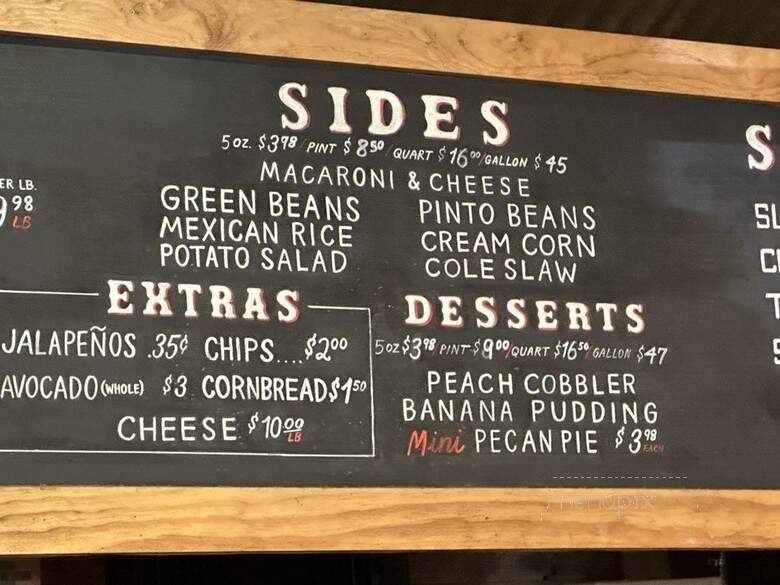 SIDES
5 oz. $3.98 PINT $8.50 QUART $16.00/GALLON $45
MACARONI & CHEESE
GREEN BEANS PINTO BEANS
MEXICAN RICE CREAM CORN
POTATO SALAD COLE SLAW
ER LB.
9.98
LB
EXTRAS
JALAPEÑOS .35¢ CHIPS....$2.00
AVOCADO (WHOLE) $3 CORNBREAD $1.50
CHEESE $10.00 LB
DESSERTS
5 oz $3.98 PINT $9.00 QUART $16.50 GALLON $47
PEACH COBBLER
BANANA PUDDING
Mini PECAN PIE $3.98 EACH
S
SL
C
T
S
menupix